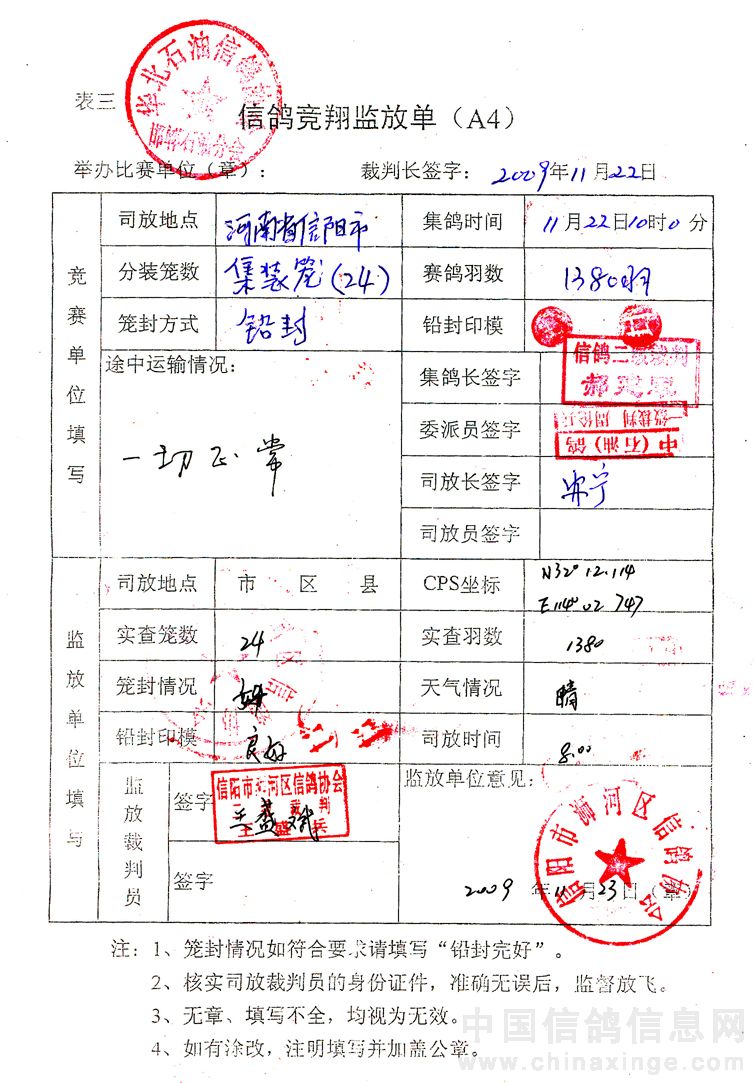 表三
华北石油信鸽
信鸽竞翔监放单（A4）
举办比赛单位（章）：
裁判长签字：2009年11月22日
竞赛单位填写
司放地点 河南省信阳市 集鸽时间 11月22日10时0分
分装笼数 集装笼(24) 赛鸽羽数 1380羽
笼封方式 铅封 铅封印模
途中运输情况：
一切正常
集鸽长签字 信鸽二级裁判
委派员签字 中(石油)鸽
司放长签字
司放员签字
监放单位填写
司放地点 市 区 县 CPS坐标 N32° 12.114
E114° 02 747
实查笼数 24 实查羽数 1380
笼封情况 天气情况 晴
铅封印模 良好 司放时间 8:00
监放裁判员
签字 信阳市浉河区信鸽协会
签字
监放单位意见：
信阳市浉河区信鸽协会
2009年11月23日（章）
注：1、笼封情况如符合要求请填写“铅封完好”。
2、核实司放裁判员的身份证件，准确无误后，监督放飞。
3、无章、填写不全，均视为无效。
4、如有涂改，注明填写并加盖公章。
中国信鸽信息网
www.chinaxinge.com